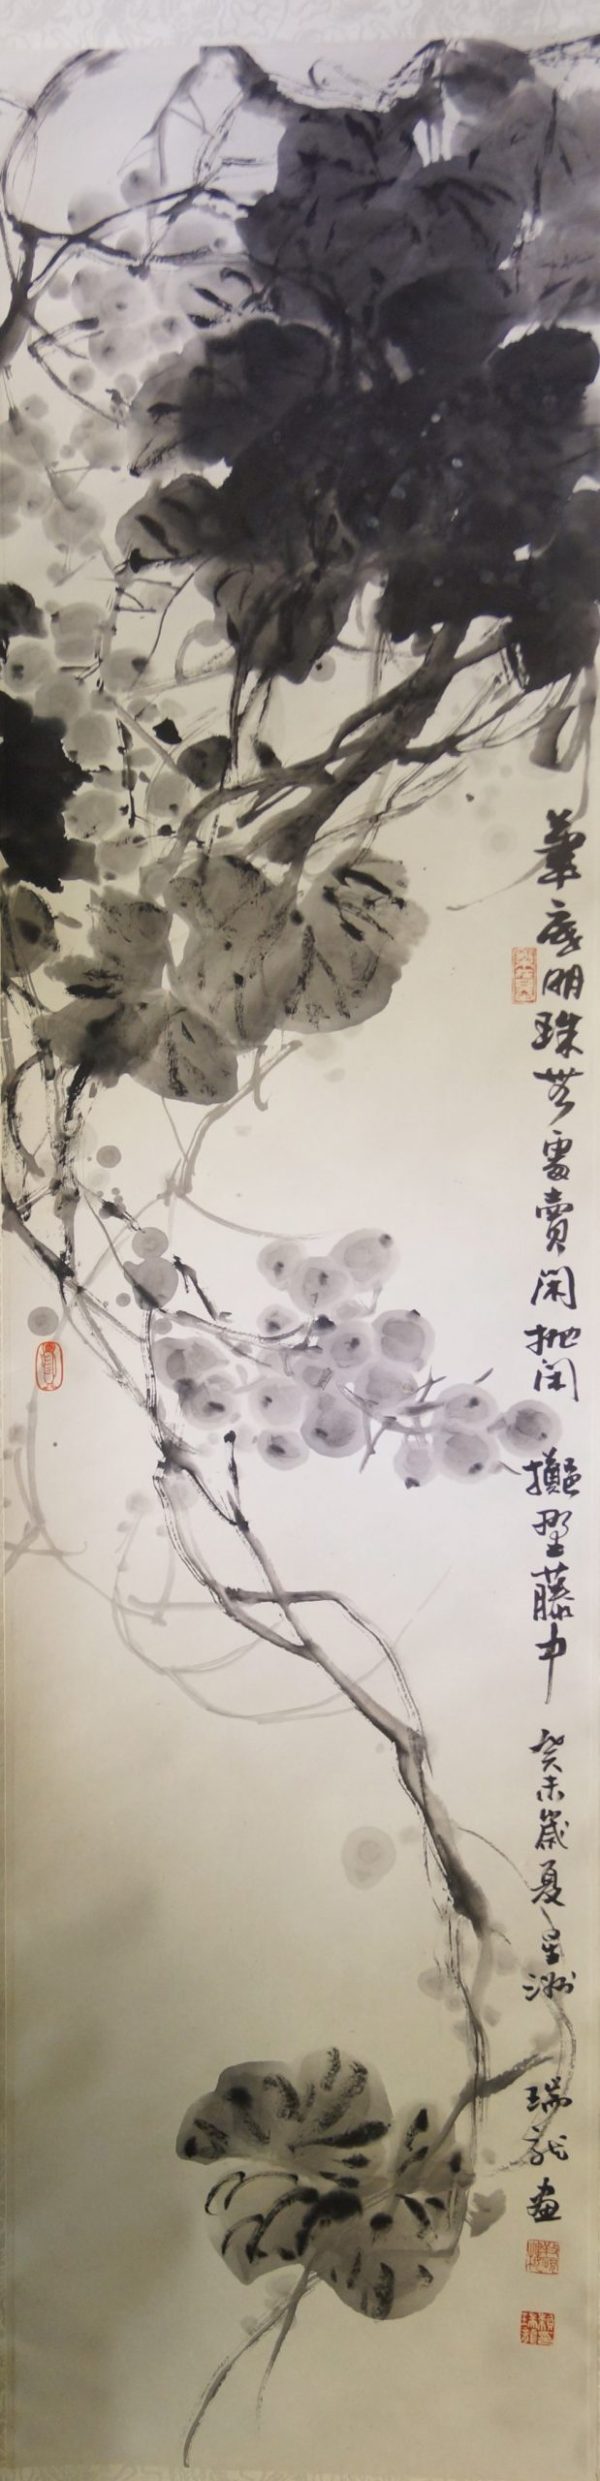 筆底明珠無處賣閑抛閑擲野藤中
癸未歲夏星洲
瑞龍畫